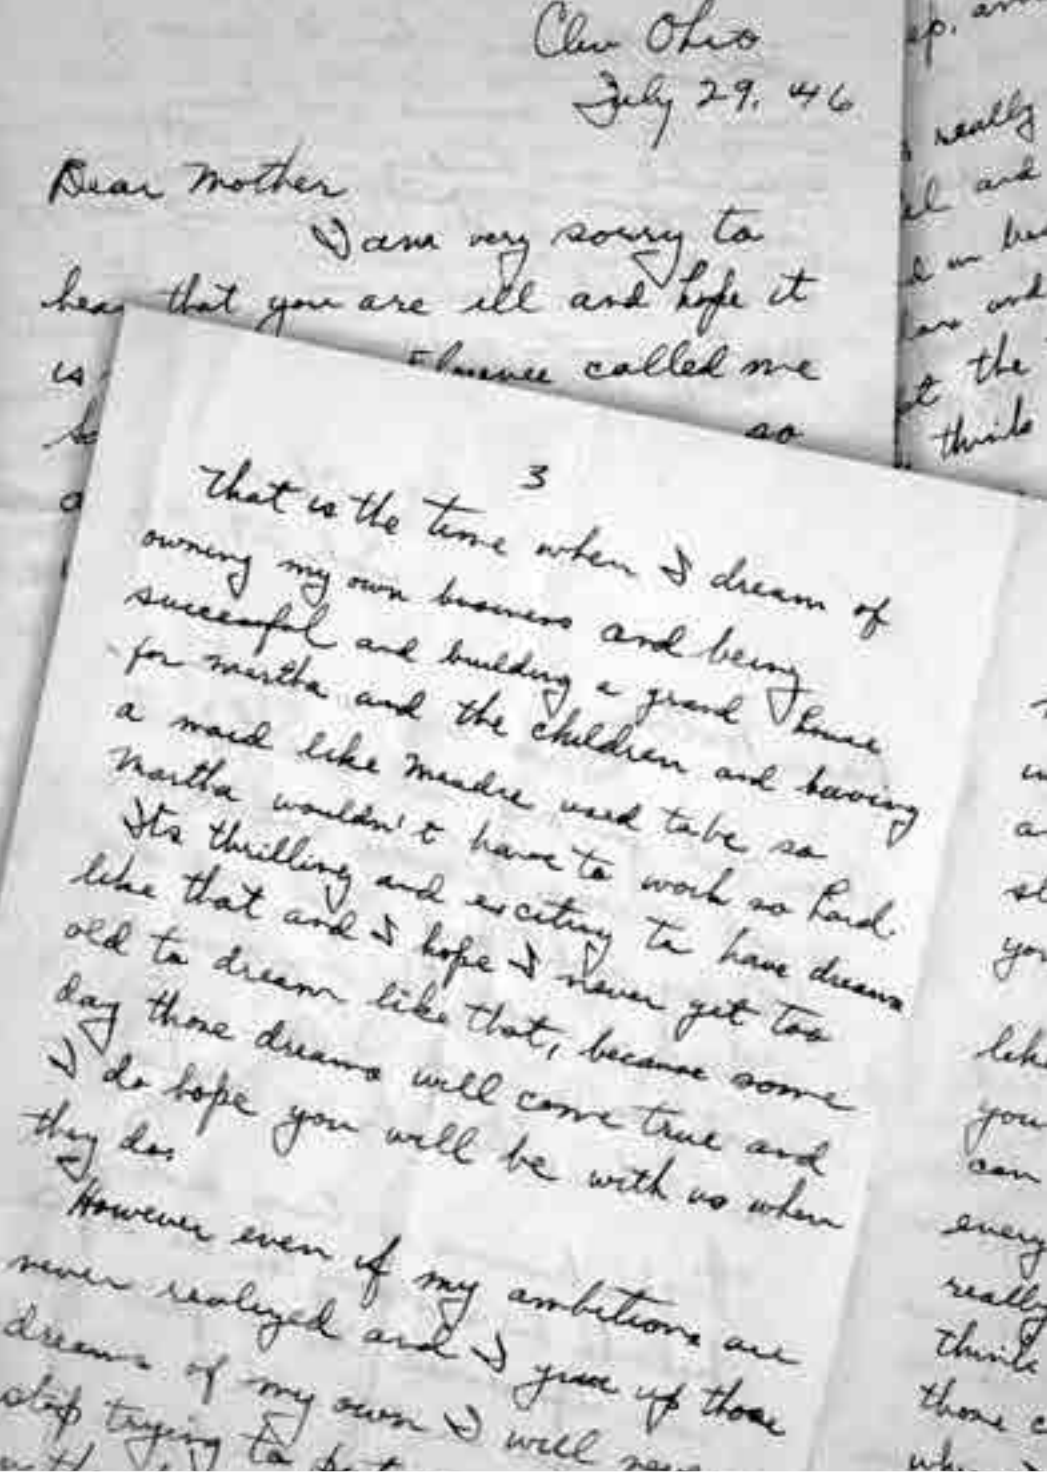 Clev Ohio
July 29. 46
Dear Mother
I am very sorry to
hear that you are ill and hope it
is Florence called me
so
3
That is the time when I dream of
owning my own business and being
successful and building a grand house
for martha and the children and having
a maid like used to be so
Martha wouldn't have to work so hard.
Its thrilling and exciting to have dreams
like that and I hope I never get too
old to dream like that, because some
day those dreams will come true and
I do hope you will be with us when
they do.
However even if my ambitions are
never realized and I give up those
dreams of my own I will never
stop trying to
really
and
and
the
think
like
you
can
every
really
think
those